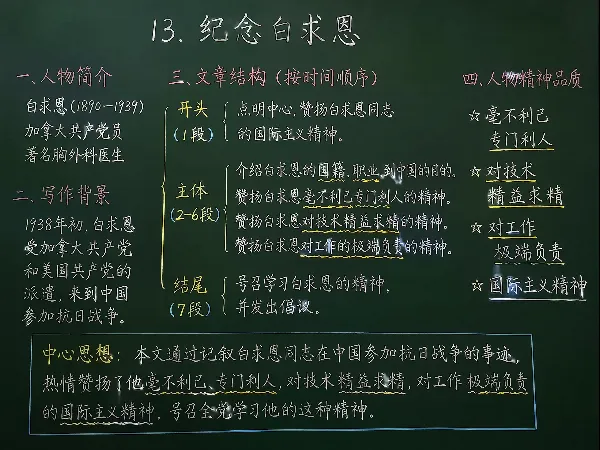 13. 纪念白求恩
一、人物简介
白求恩(1890-1939)
加拿大共产党员
著名胸外科医生
二、写作背景
1938年初,白求恩
受加拿大共产党
和美国共产党的
派遣,来到中国
参加抗日战争。
三、文章结构(按时间顺序)
开头
(1段)
点明中心,赞扬白求恩同志
的国际主义精神。
主体
(2-6段)
介绍白求恩的国籍、职业,到中国的目的。
赞扬白求恩毫不利己专门利人的精神。
赞扬白求恩对技术精益求精的精神。
赞扬白求恩对工作的极端负责的精神。
结尾
(7段)
号召学习白求恩的精神,
并发出倡议。
四、人物精神品质
☆毫不利己
专门利人
☆对技术
精益求精
☆对工作
极端负责
☆国际主义精神
中心思想:本文通过记叙白求恩同志在中国参加抗日战争的事迹,
热情赞扬了他毫不利己、专门利人,对技术精益求精,对工作极端负责
的国际主义精神,号召全党学习他的这种精神。